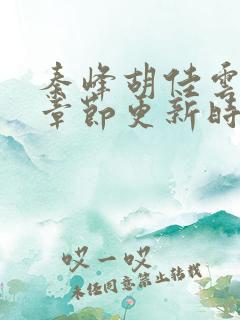 秦峰胡佳雲
章節更新時
哎一哎
未经同意禁止转载